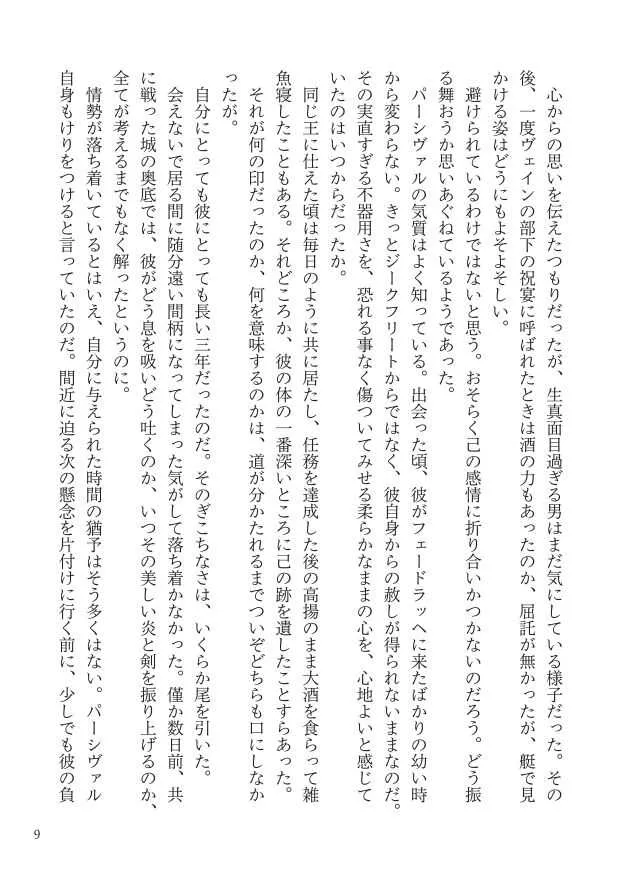 心からの思いを伝えたつもりだったが、生真面目過ぎる男はまだ気にしている様子だった。その
後、一度ヴェインの部下の祝宴に呼ばれたときは酒の力もあったのか、屈託が無かったが、艇で見
かける姿はどうにもよそよそしい。
避けられているわけではないと思う。おそらく己の感情に折り合いがつかないのだろう。どう振
る舞おうか思いあぐねているようであった。
パーシヴァルの気質はよく知っている。出会った頃、彼がフェードラッヘに来たばかりの幼い時
から変わらない。きっとジークフリートからではなく、彼自身からの赦しが得られないままなのだ。
その実直すぎる不器用さを、恐れる事なく傷ついてみせる柔らかなままの心を、心地よいと感じて
いたのはいつからだったか。
同じ王に仕えた頃は毎日のように共に居たし、任務を達成した後の高揚のまま大酒を食らって雑
魚寝したこともある。それどころか、彼の体の一番深いところに己の跡を遺したことすらあった。
それが何の印だったのか、何を意味するのかは、道が分かたれるまでついぞどちらも口にしなか
ったが。
自分にとっても彼にとっても長い三年だったのだ。そのぎこちなさは、いくらか尾を引いた。
会えないで居る間に随分遠い間柄になってしまった気がして落ち着かなかった。僅か数日前、共
に戦った城の奥底では、彼がどう息を吸いどう吐くのか、いつその美しい炎と剣を振り上げるのか、
全てが考えるまでもなく解ったというのに。
情勢が落ち着いているとはいえ、自分に与えられた時間の猶予はそう多くはない。パーシヴァル
自身もけりをつけると言っていたのだ。間近に迫る次の懸念を片付けに行く前に、少しでも彼の負
9